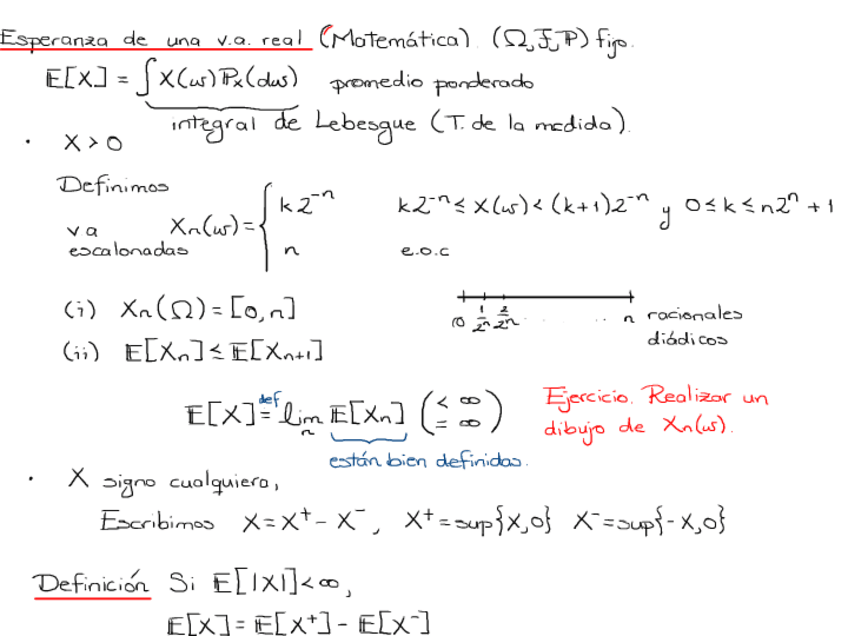 Esperanza de una v.a. real (Matemática). (Ω,F,ℙ) fijo.
𝔼[X] = ∫X(ω)ℙx(dω) promedio ponderado
integral de Lebesgue (T. de la medida).
• X > 0
Definimos
va escalonadas Xn(ω) = { k2^-n   k2^-n ≤ X(ω) < (k+1)2^-n y 0 ≤ k ≤ n2^n + 1
n   e.o.c
(i) Xn(Ω) = [0,n]
0 1/2^n 2/2^n ..... n racionales diádicos
(ii) 𝔼[Xn] ≤ 𝔼[Xn+1]
𝔼[X] =def lim n 𝔼[Xn] (< ∞ = ∞)
están bien definidas.
Ejercicio. Realizar un
dibujo de Xn(ω).
• X signo cualquiera,
Escribimos X = X⁺ - X⁻, X⁺ = sup{X,0} X⁻ = sup{-X,0}
Definición Si 𝔼[|X|] < ∞,
𝔼[X] = 𝔼[X⁺] - 𝔼[X⁻]